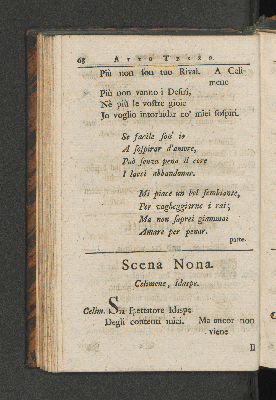 68 ATTO TERZO.
Più non son tuo Rival. A Celi-
mene
Più non vanno i Desiri,
Nè più le vostre gioie
Io voglio intorbidar co' miei sospiri.
Se facile son' io
A sospirar d'amore,
Può senza pena il core
I lacci abbandonar.
Mi piace un bel sembiante,
Per vagheggiarne i rai;
Ma non saprei giammai
Amare per penar.
parte.
Scena Nona.
Celimene, Idaspe.
Celim. Sia spettatore Idaspe
Degli contenti miei. Ma ancor non
viene
Il